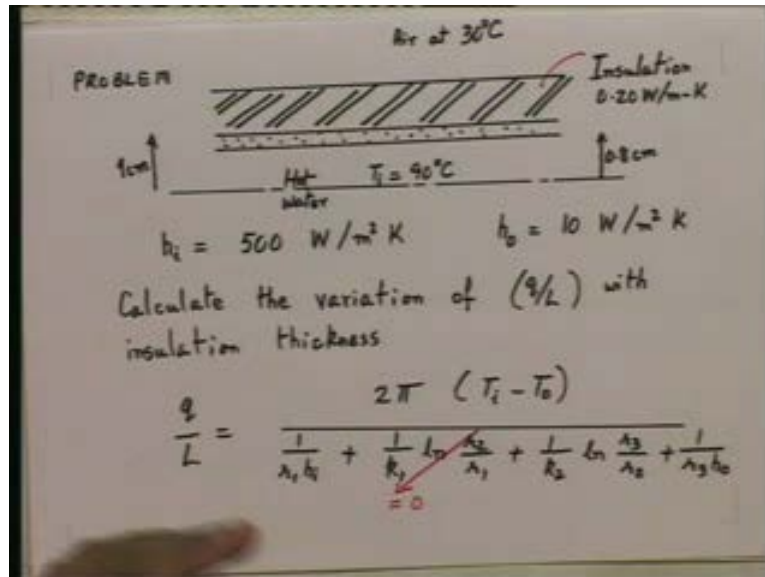 Air at 30°C
PROBLEM
Insulation
0.20 W/m-K
1cm
0.8cm
Hot water
Ti = 90°C
hi = 500 W/m² K
ho = 10 W/m² K
Calculate the variation of (q/L) with
insulation thickness
q/L = 2π (Ti - To) / (1/r1hi + 1/k1 ln r2/r1 + 1/k2 ln r3/r2 + 1/r3ho)
= 0